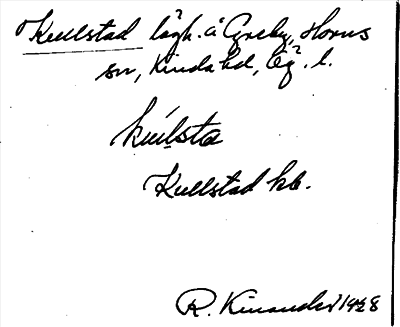 Kullstad lägh. å Greby, Horns
sn, Kinda hd, Ög. l.
kúlsta
Kullstad hb.
R. Kinander 1928